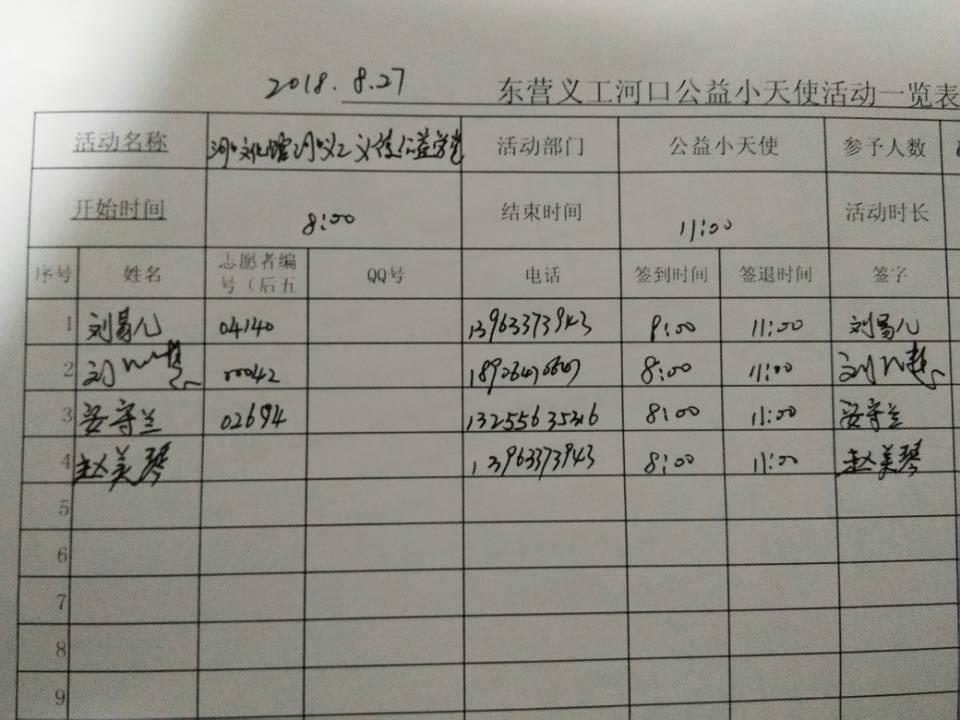 2018.8.27 东营义工河口公益小天使活动一览表
活动名称 河口文化馆河口义工 公益学堂 活动部门 公益小天使 参予人数
开始时间 8:00 结束时间 11:00 活动时长
序号 姓名 志愿者编号（后五 QQ号 电话 签到时间 签退时间 签字
1 刘易儿 04140 13963373943 8:00 11:00 刘易儿
2 刘 00042 8:00 11:00 刘
3 安守兰 02694 13255635316 8:00 11:00 安守兰
4 赵美琴 13963373943 8:00 11:00 赵美琴
5
6
7
8
9